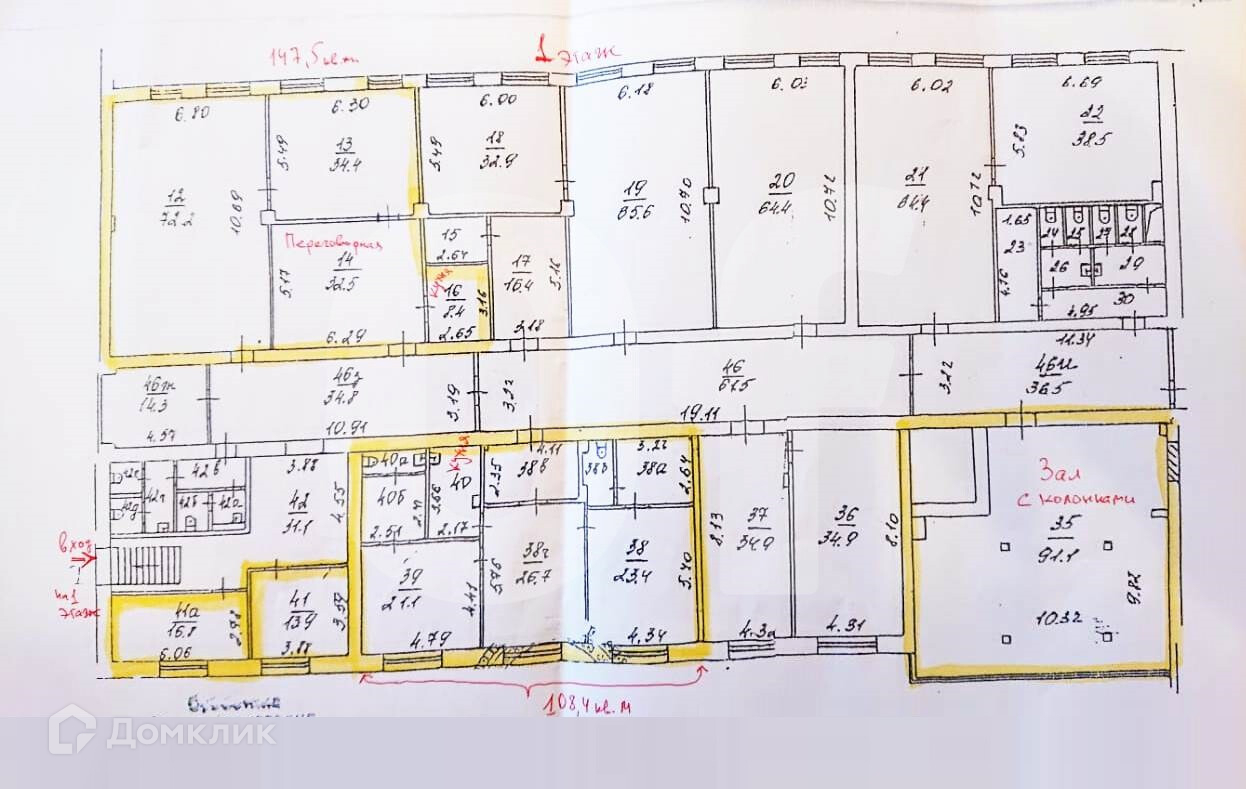 147,5 кв.м
1 этаж
6.80
6.30
6.00
6.18
6.03
6.02
6.69
12
72.2
10.69
5.49
13
34.4
5.49
18
32.9
19
65.6
10.70
20
64.4
10.72
21
64.4
10.72
5.83
22
38.5
Переговорная
14
32.5
5.17
6.29
15
2.64
Кухня
16
8.4
3.16
2.65
17
16.4
5.16
3.18
1.65
23
4.76
24
25
27
28
26
29
30
3.95
46ж
14.3
4.57
46з
34.8
10.91
3.19
3.22
46
61.5
19.11
3.22
11.34
46и
36.5
42в
42г
42б
42а
42д
3.88
42
31.1
4.55
40а
40б
2.51
2.41
Кухня
40
3.66
2.17
4.11
38в
2.35
38б
3.22
38а
2.64
37
34.9
8.13
4.32
36
34.9
8.10
4.31
Зал
с колонками
35
91.1
10.32
9.82
вход
на 1
этаж
41а
15.8
2.78
6.06
41
13.9
3.59
3.88
39
21.1
4.41
4.79
38г
26.7
5.76
38
23.4
5.40
4.34
108,4 кв.м
Домклик